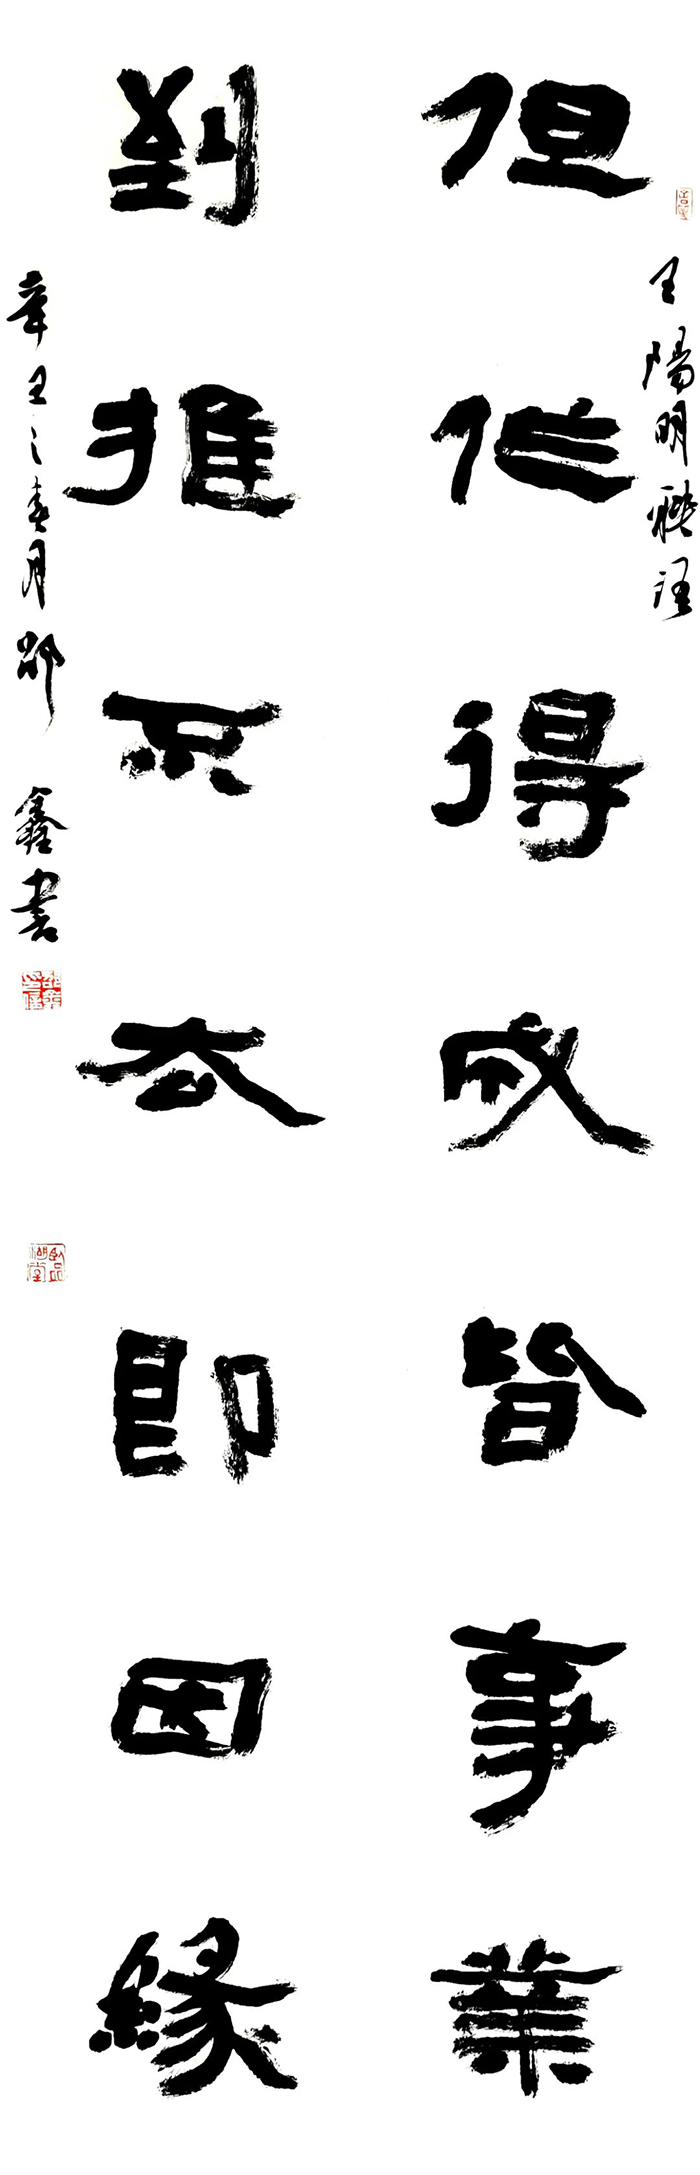 王陽明聯語
但作得成皆事業
到推不去即因緣
辛丑之春月邵鑫書